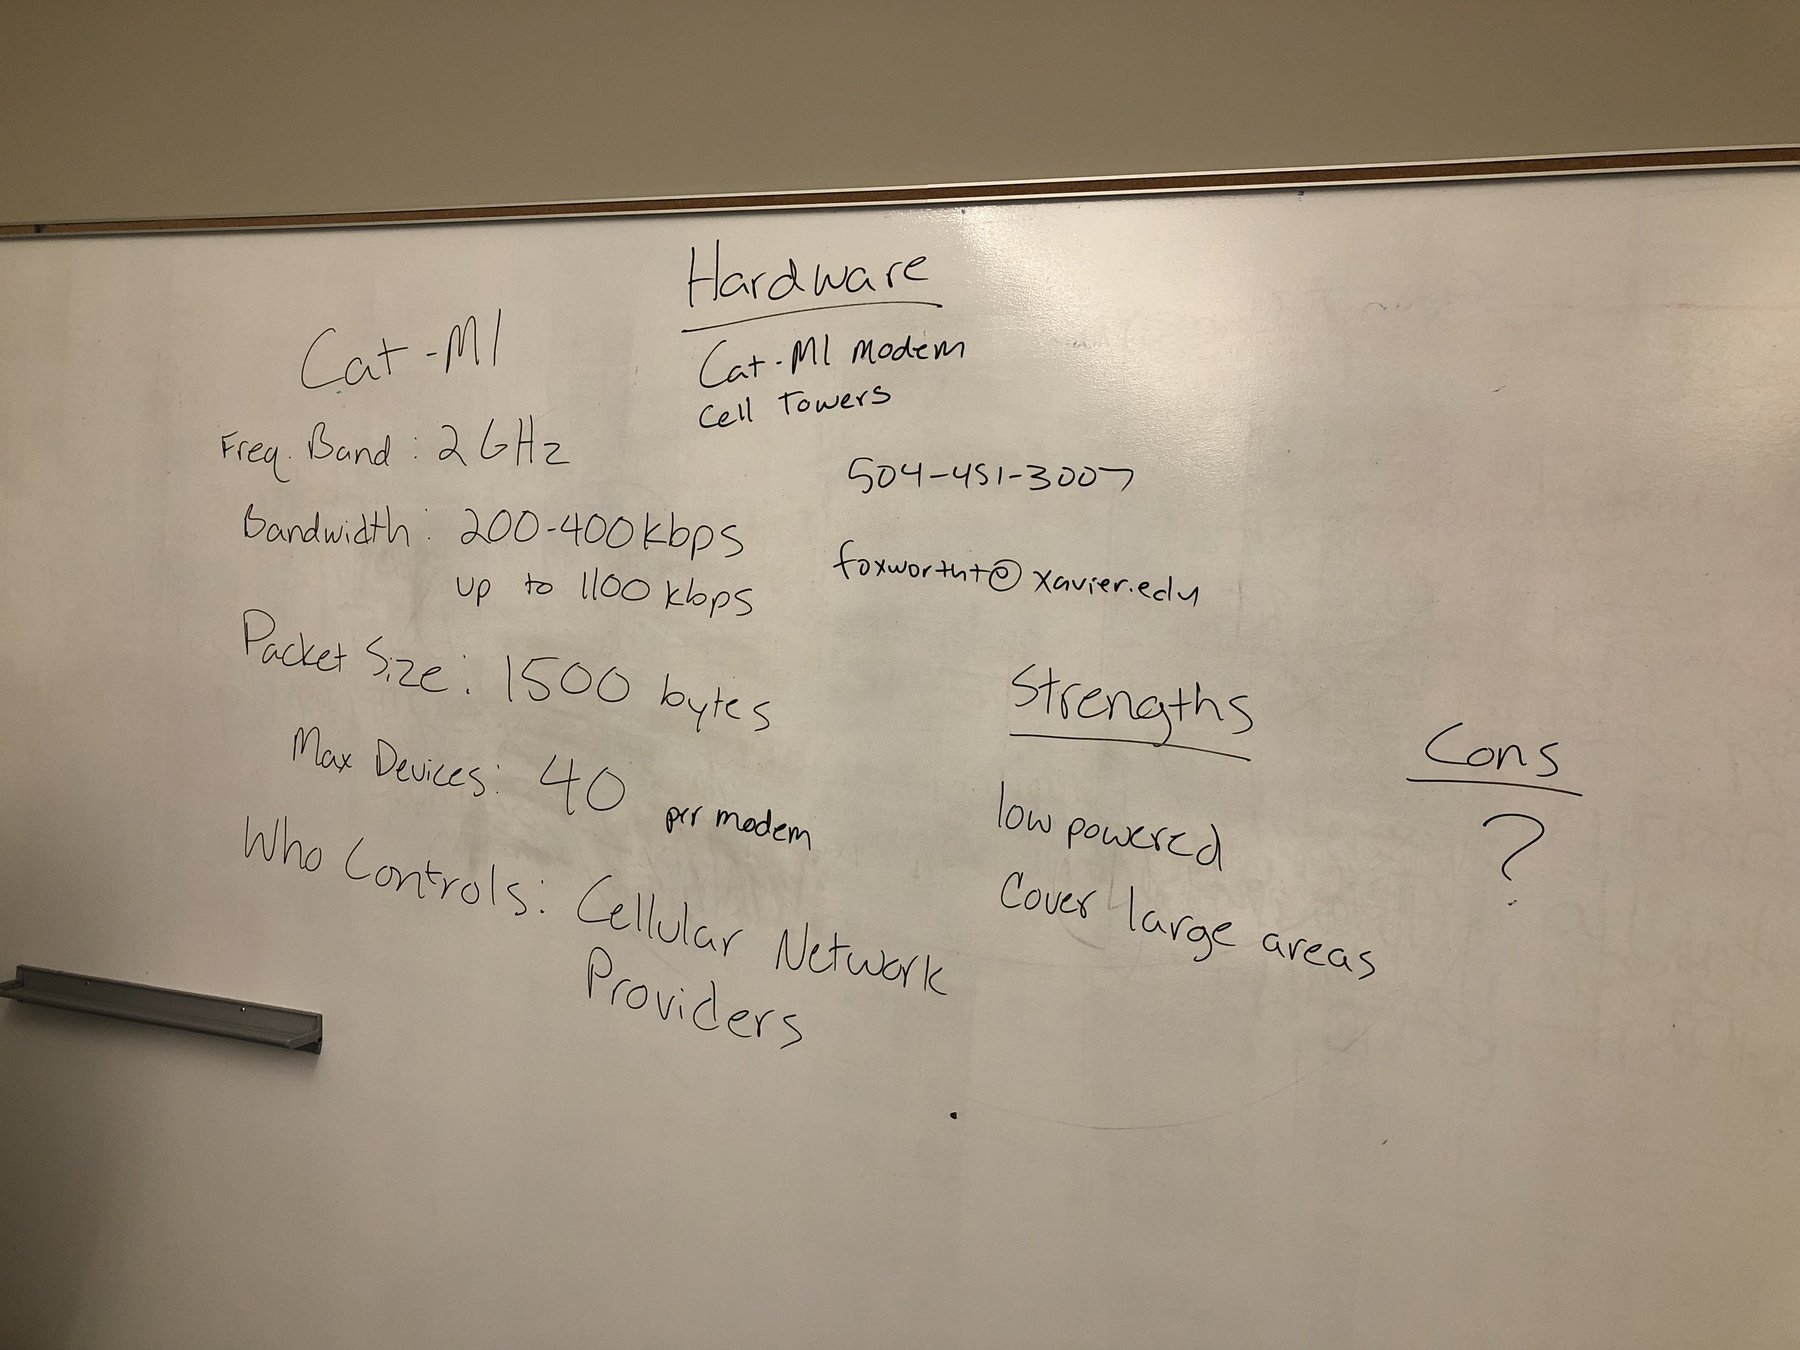 Hardware
Cat-M1 Modem
Cell Towers
Cat-M1
Freq. Band: 2 GHz
Bandwidth: 200-400 kbps
up to 1100 kbps
Packet Size: 1500 bytes
Max Devices: 40 per modem
Who Controls: Cellular Network
Providers
504-451-3007
foxwortht@xavier.edu
Strengths
low powered
Cover large areas
Cons
?